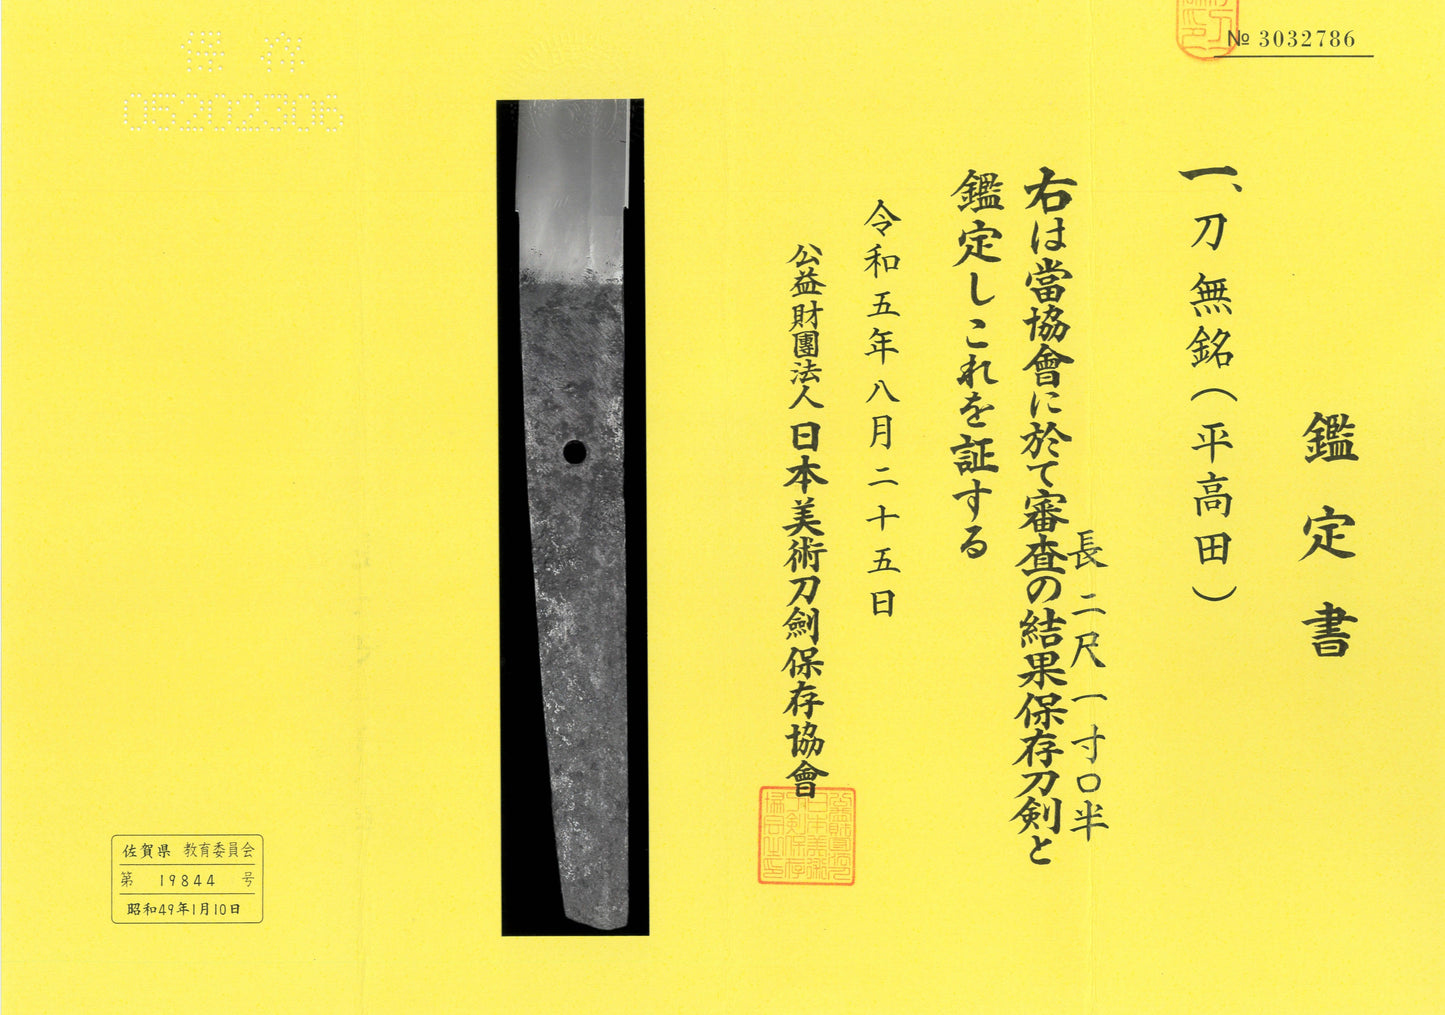 № 3032786
鑑定書
一、刀 無銘(平高田)
長 二尺一寸〇半
右は當協會に於て審査の結果保存刀剣と
鑑定しこれを証する
令和五年八月二十五日
公益財團法人日本美術刀劍保存協會
保存
05202306
佐賀県 教育委員会
第 19844 号
昭和49年1月10日